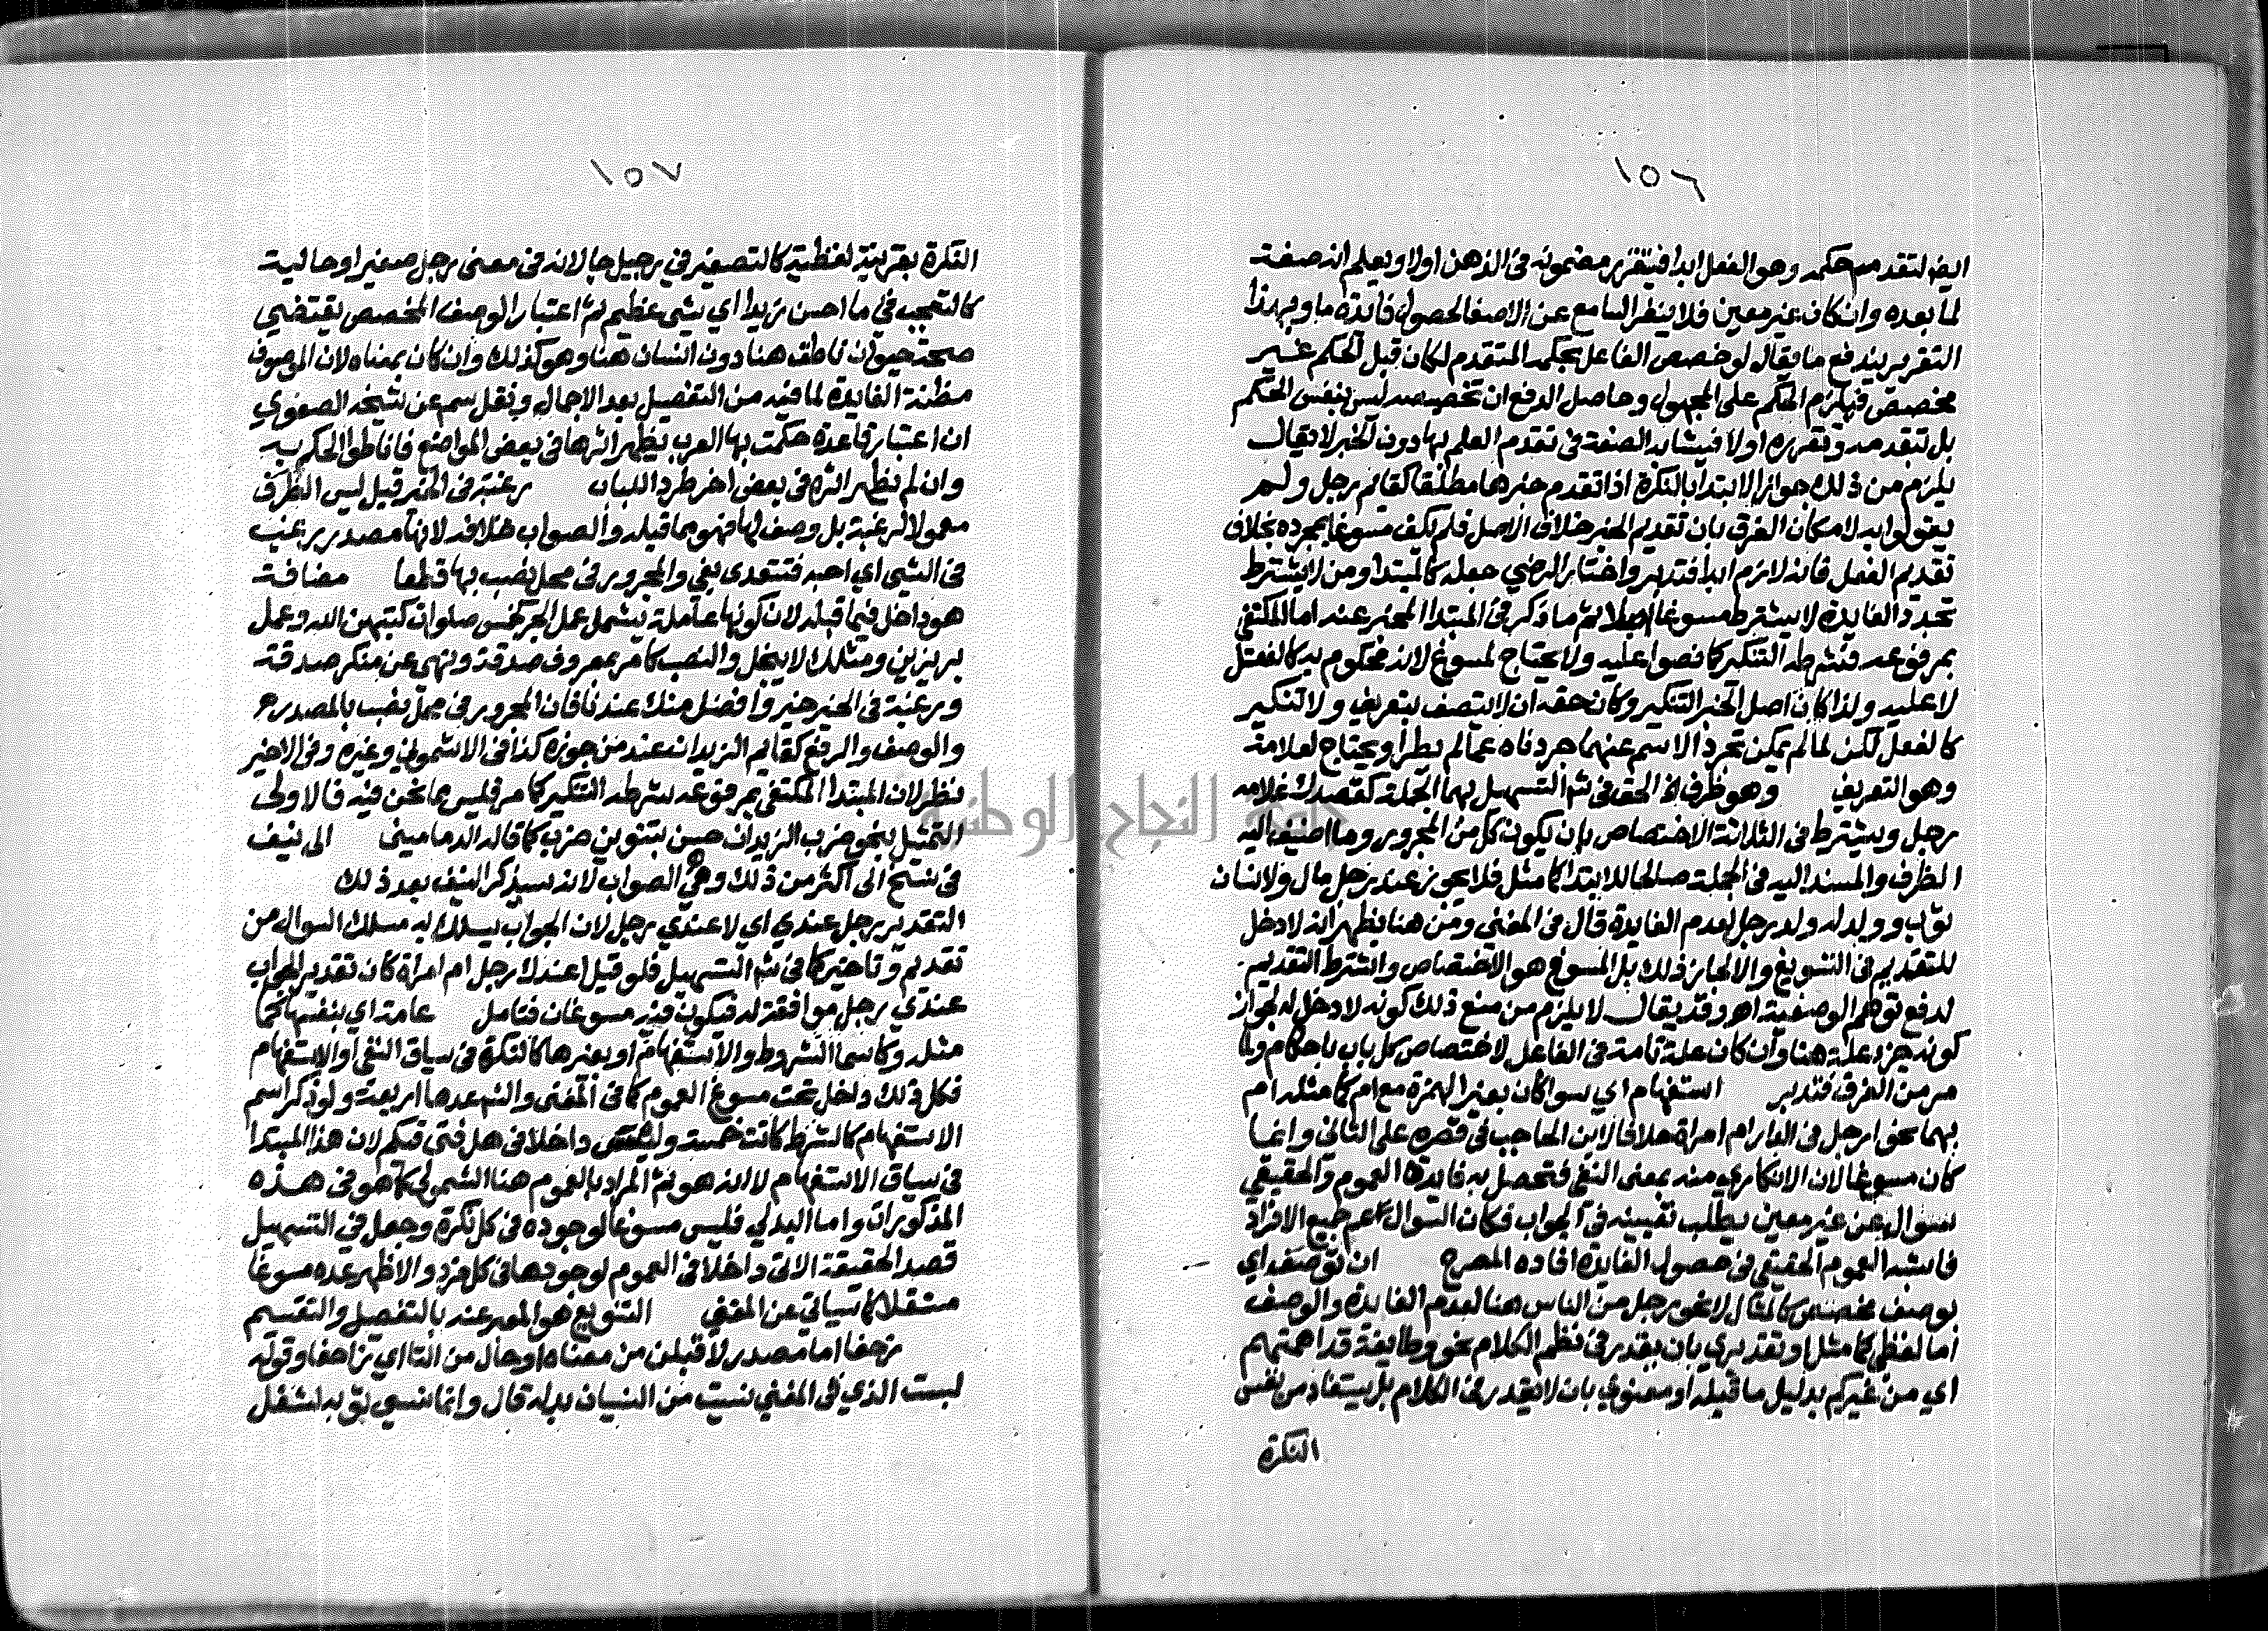 ١٥٦
ايضا لتقدم حكمه وهو الفعل ابدا فيتقرر مضمونه في الذهن اولا ويعلم انه صفة
لما بعده وان كان غير معين فلا ينفر السامع عن الاصغا لحصول فايدة ما وبهذا
التقرير يندفع ما يقال لو خصص الفاعل بحكمه المتقدم لكان قبل الحكم غير
مخصص فيلزم الحكم على المجهول وحاصل الدفع ان تخصيصه ليس بنفس الحكم
بل بتقدمه وتقرره اولا فيشابه الصفة في تقدم العلم بها دون الخبر لا يقال
يلزم من ذلك جواز الابتدا بالنكرة اذا تقدم خبرها مطلقا كقائم رجل ولم
يقولوا به لامكان الفرق بان تقديم الخبر خلاف الاصل فلم يكف مسوغا بمجرده بخلاف
تقديم الفعل فانه لازم ابدا فتدبر واختار الرضي جعله كالمبتدا ومن لا يشترط
تجدد الفايدة لا يشترط مسوغا اصلا ثم ما ذكر في المبتدا المخبر عنه اما المكتفي
بمرفوعه فشرطه التنكير كما نصوا عليه ولا يحتاج لمسوغ لانه محكوم به كالفعل
لا عليه ولذا كان اصل الخبر التنكير وكان حقه ان لا يتصف بتعريف ولا تنكير
كالفعل لكن لما لم يمكن تجرد الاسم عنهما جردناه عما لم يطرأ ويحتاج لعلامة
وهو التعريف وهو ظرف الخ الحق في شرح التسهيل بهما الجملة كقصدك غلامه
رجل ويشترط في الثلاثة الاختصاص بان يكون كل من المجرور وما اضيف اليه
الظرف والمسند اليه في الجملة صالحا للابتدا كما مثل فلا يجوز عند رجل مال ولانسان
ثوب وولد له ولد رجل لعدم الفايدة قال في المغني ومن هنا يظهر انه لا دخل
للتقديم في التسويغ والا لجاز ذلك بل المسوغ هو الاختصاص واشترط التقديم
لدفع توهم الوصفية اهـ وقد يقال لا يلزم من منع ذلك كونه لا دخل له لجواز
كونه جزء علة هنا وان كان علة تامة في الفاعل لاختصاص كل باب باحكام ولما
مر من الفرق فتدبر استفهام اي سوا كان بغير الهمزة مع ام كما مثله ام
بهما نحو ارجل في الدار ام امراة خلافا لابن الحاجب في قصره على الثاني وانما
كان مسوغا لان الانكاري منه بمعنى النفي فتحصل به فايدة العموم والحقيقي
سوال عن غير معين يطلب تعيينه في الجواب فكان السوال عم جميع الافراد
فاشبه العموم الحقيقي في حصول الفايدة افاده المصرح ان توصف اي
بوصف مخصص كالمثال لا نحو رجل من الناس هنا لعدم الفايدة والوصف
اما لفظي كما مثل او تقديري بان يقدر في نظم الكلام نحو وطايفة قد اهمتهم
اي من غيركم بدليل ما قبله او معنوي بان لا يقدر في الكلام بل يستفاد من نفس
النكرة
١٥٧
النكرة بقرينة لفظية كالتصغير في رجيل جا لانه في معنى رجل صغير او حالية
كالتعجب في ما احسن زيدا اي شي عظيم ثم اعتبار الوصف المخصص يقتضي
صحة حيوان ناطق هنا دون انسان هنا وهو كذلك وان كان بمعناه لان الموصوف
مظنة الفايدة لما فيه من التفصيل بعد الاجمال ونقل سم عن شيخه الصفوي
ان اعتبار قاعدة حكمت بها العرب يظهر اثرها في بعض المواضع فاناطوا الحكم به
وان لم يظهر اثره في بعض اخر طردا للباب رغبة في الخير قيل ليس الظرف
معمولا لرغبة بل وصف لها فهو مما قبله والصواب خلافه لانها مصدر يرغب
في الشي اي احبه فتتعدى بفي والمجرور في محل نصب بها قطعا مضافة
هو داخل فيما قبله لان كونها عاملة يشمل عمل الجر كخمس صلوات كتبهن الله وعمل
بر يزين ومثلك لا يبخل والنصب كامر بمعروف صدقة ونهي عن منكر صدقة
ورغبة في الخير خير وافضل منك عندنا فان المجرور في محل نصب بالمصدر
والوصف والرفع كقائم الزيدان عند من جوزه كذا في الاشموني وغيره وفي الاخير
نظر لان المبتدا المكتفي بمرفوعه شرطه التنكير كما مر فليس مما نحن فيه فالاولى
التمثيل بنحو ضرب الزيدان حسن بتنوين ضرب كما قاله الدماميني الى نيف
في نسخ الى اكثر من ذلك وهي الصواب لانه سيذكر النيف بعد ذلك
التقدير رجل عندي اي لا عندي رجل لان الجواب يسلك به مسلك السوال من
تقديم وتاخير كما في شرح التسهيل فلو قيل اعندك رجل ام امراة كان تقدير الجواب
عندي رجل موافقة له فيكون فيه مسوغان فتامل عامة اي بنفسها كما
مثله وكاسما الشروط والاستفهام او بغيرها كالنكرة في سياق النفي او الاستفهام
فكل ذلك داخل تحت مسوغ العموم كما في المغني والشرح عدها اربعة ولو ذكر اسم
الاستفهام كالشرط كانت خمسة وليس داخلا في هل فتى فيكم لان هذا المبتدا
في سياق الاستفهام لا انه هو ثم المراد بالعموم هنا الشمولي كما هو في هذه
المذكورات واما البدلي فليس مسوغا لوجوده في كل نكرة وجعل في التسهيل
قصد الحقيقة الاتي داخلا في العموم لوجودها في كل فرد والاظهر عده مسوغا
مستقلا كما سياتي عن المغني التنويع هو المعبر عنه بالتفصيل والتقسيم
زحفا اما مصدر لاقبلن من معناه او حال من التا اي زاحفا وقوله
لبست الذي في المغني نسيت من النسيان بدله قال وانما نسي ثوبه لشغل